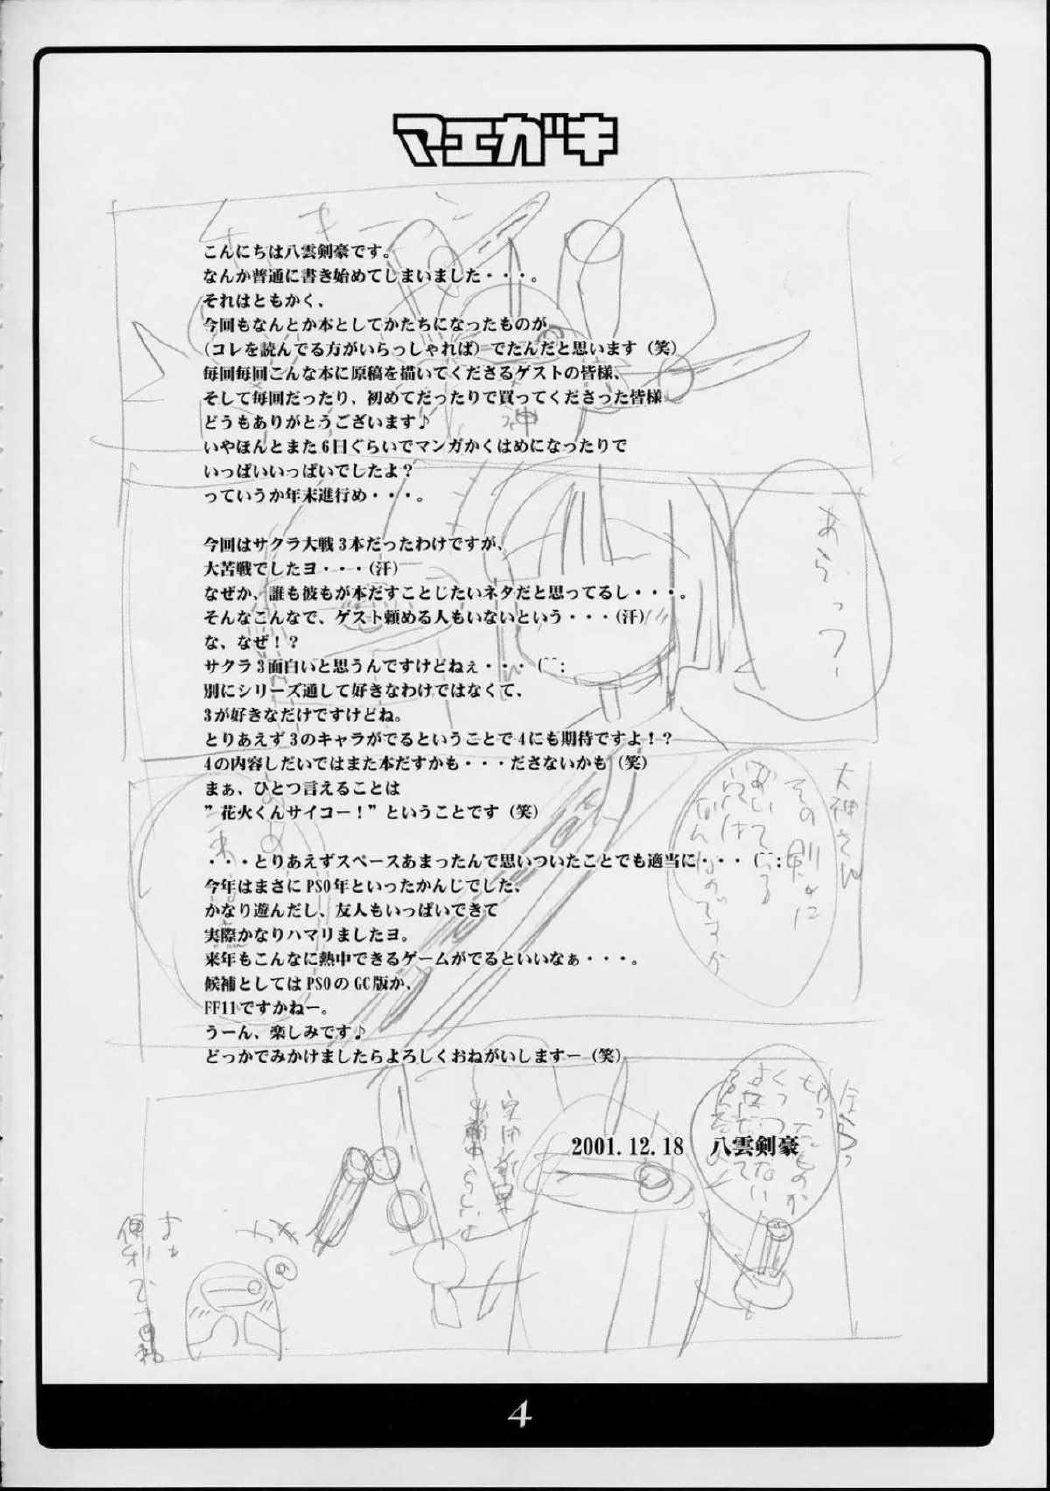 マエガキ
こんにちは八雲剣豪です。
なんか普通に書き始めてしまいました・・・。
それはともかく、
今回もなんとか本としてかたちになったものが
(コレを読んでる方がいらっしゃれば) でたんだと思います (笑)
毎回毎回こんな本に原稿を描いてくださるゲストの皆様、
そして毎回だったり、初めてだったりで買ってくださった皆様
どうもありがとうございます♪
いやほんとまた6日ぐらいでマンガかくはめになったりで
いっぱいいっぱいでしたよ？
っていうか年末進行め・・・。
今回はサクラ大戦3本だったわけですが、
大苦戦でしたヨ・・・(汗)
なぜか、誰も彼もが本だすことじたいネタだと思ってるし・・・。
そんなこんなで、ゲスト頼める人もいないという・・・(汗)
な、なぜ！？
サクラ3面白いと思うんですけどねぇ・・・ (￣￣;
別にシリーズ通して好きなわけではなくて、
3が好きなだけですけどね。
とりあえず3のキャラがでるということで4にも期待ですよ！？
4の内容しだいではまた本だすかも・・・ださないかも (笑)
まぁ、ひとつ言えることは
”花火くんサイコー！”ということです (笑)
・・・とりあえずスペースあまったんで思いついたことでも適当に・・・ (￣￣;
今年はまさにPSO年といったかんじでした、
かなり遊んだし、友人もいっぱいできて
実際かなりハマリましたヨ。
来年もこんなに熱中できるゲームがでるといいなぁ・・・。
候補としてはPSOのGC版か、
FF11ですかねー。
うーん、楽しみです♪
どっかでみかけましたらよろしくおねがいしますー (笑)
2001.12.18 八雲剣豪
あらっフー
大神さん
その剣に
おいてある
穴は
なんなのですか
4